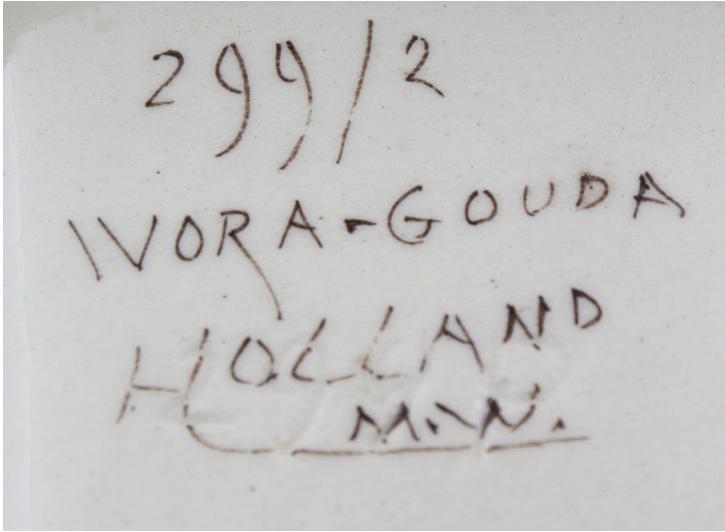 299/2
IVORA-GOUDA
HOLLAND
M.W.